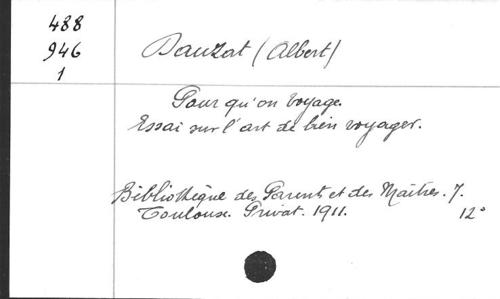 488
946
1
Dauzat (Albert)
Pour qu'on voyage.
Essai sur l'art de bien voyager.
Bibliothèque des Parents et des Maîtres. 7.
Toulouse. Privat. 1911. 12°